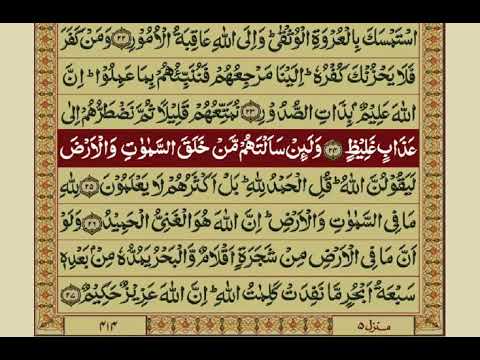 اسْتَمْسَكَ بِالْعُرْوَةِ الْوُثْقٰىؕ وَاِلَى اللّٰهِ عَاقِبَةُ الْاُمُوْرِ ۝۲۲ وَمَنْ كَفَرَ
فَلَا يَحْزُنْكَ كُفْرُهٗؕ اِلَيْنَا مَرْجِعُهُمْ فَنُنَبِّئُهُمْ بِمَا عَمِلُوْاؕ اِنَّ
اللّٰهَ عَلِيْمٌۢ بِذَاتِ الصُّدُوْرِ ۝۲۳ نُمَتِّعُهُمْ قَلِيْلًا ثُمَّ نَضْطَرُّهُمْ اِلٰى
عَذَابٍ غَلِيْظٍ ۝۲۴ وَلَئِنْ سَاَلْتَهُمْ مَّنْ خَلَقَ السَّمٰوٰتِ وَالْاَرْضَ
لَيَقُوْلُنَّ اللّٰهُؕ قُلِ الْحَمْدُ لِلّٰهِؕ بَلْ اَكْثَرُهُمْ لَا يَعْلَمُوْنَ ۝۲۵ لِلّٰهِ
مَا فِى السَّمٰوٰتِ وَالْاَرْضِؕ اِنَّ اللّٰهَ هُوَ الْغَنِىُّ الْحَمِيْدُ ۝۲۶ وَلَوْ
اَنَّ مَا فِى الْاَرْضِ مِنْ شَجَرَةٍ اَقْلَامٌ وَّالْبَحْرُ يَمُدُّهٗ مِنْۢ بَعْدِهٖ
سَبْعَةُ اَبْحُرٍ مَّا نَفِدَتْ كَلِمٰتُ اللّٰهِؕ اِنَّ اللّٰهَ عَزِيْزٌ حَكِيْمٌ ۝۲۷
منزل ۵
۴۱۴